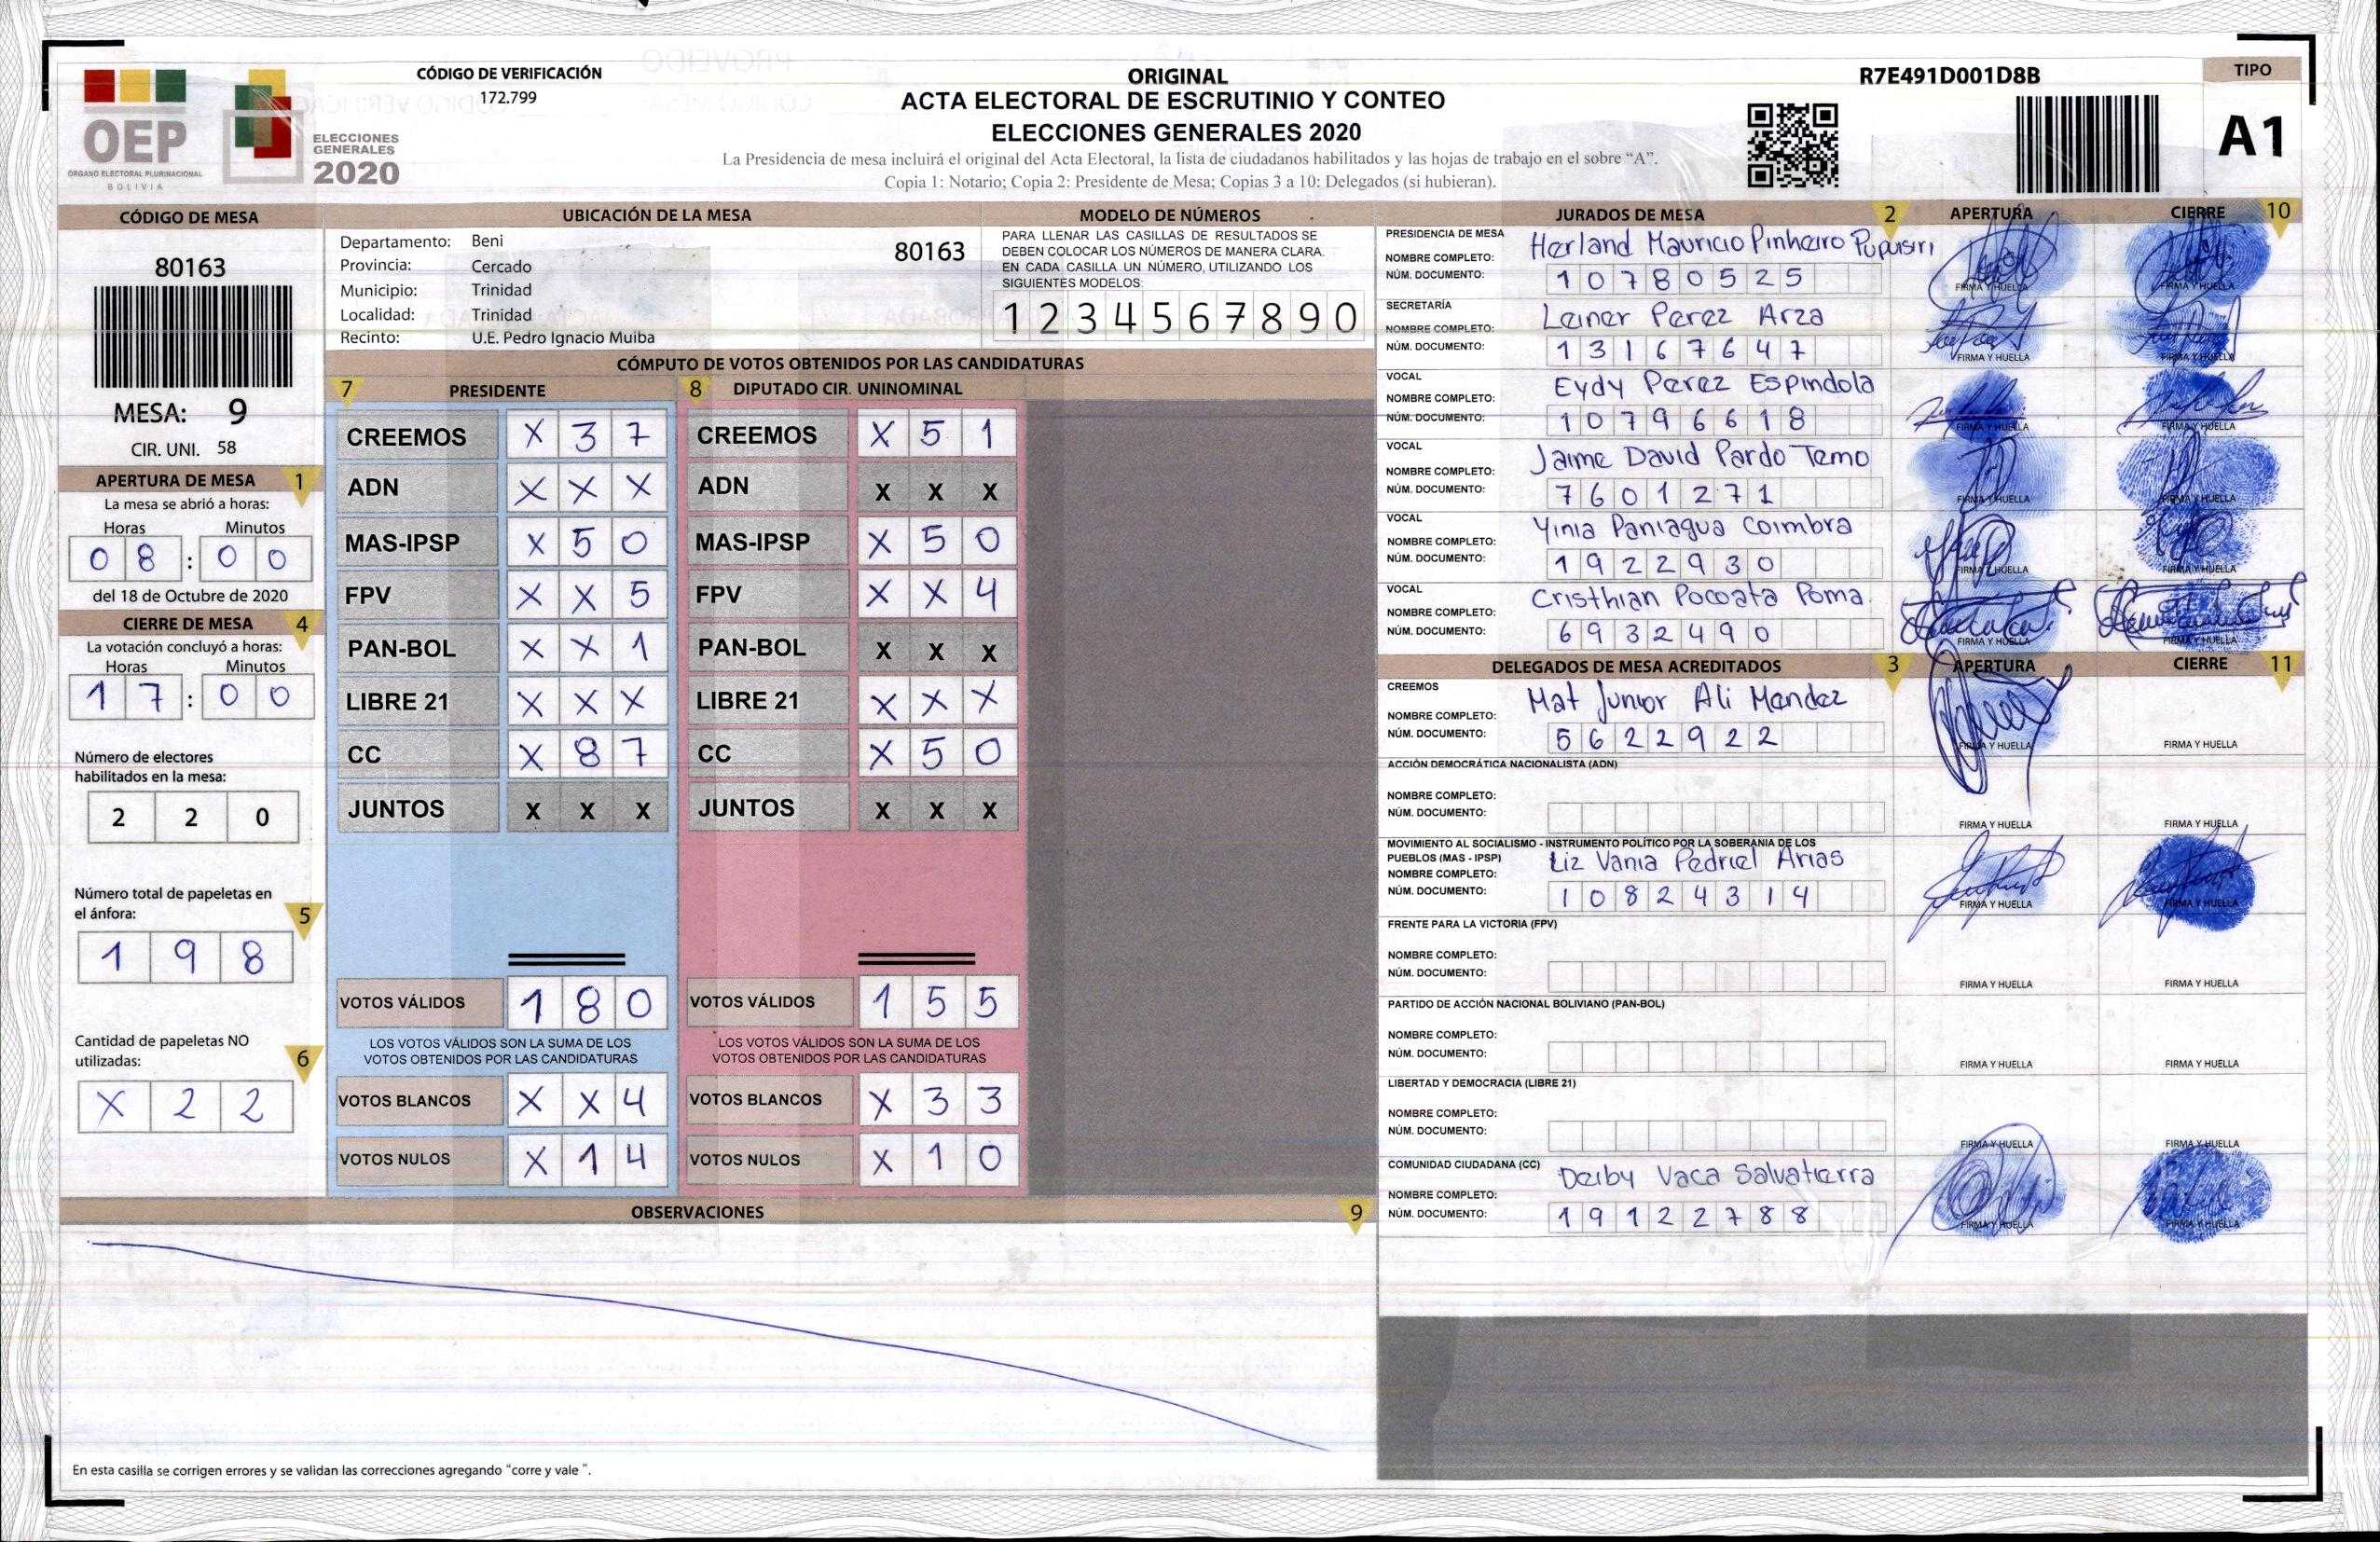 CÓDIGO DE VERIFICACIÓN
172.799
OEP
ÓRGANO ELECTORAL PLURINACIONAL
BOLIVIA
ELECCIONES
GENERALES
2020
ORIGINAL
ACTA ELECTORAL DE ESCRUTINIO Y CONTEO
ELECCIONES GENERALES 2020
La Presidencia de mesa incluirá el original del Acta Electoral, la lista de ciudadanos habilitados y las hojas de trabajo en el sobre “A”.
Copia 1: Notario; Copia 2: Presidente de Mesa; Copias 3 a 10: Delegados (si hubieran).
R7E491D001D8B
TIPO
A1
CÓDIGO DE MESA
80163
MESA: 9
CIR. UNI. 58
APERTURA DE MESA 1
La mesa se abrió a horas:
Horas Minutos
0 8 : 0 0
del 18 de Octubre de 2020
CIERRE DE MESA 4
La votación concluyó a horas:
Horas Minutos
1 7 : 0 0
Número de electores
habilitados en la mesa:
2 2 0
Número total de papeletas en
el ánfora: 5
1 9 8
Cantidad de papeletas NO
utilizadas: 6
X 2 2
UBICACIÓN DE LA MESA
Departamento: Beni 80163
Provincia: Cercado
Municipio: Trinidad
Localidad: Trinidad
Recinto: U.E. Pedro Ignacio Muiba
MODELO DE NÚMEROS
PARA LLENAR LAS CASILLAS DE RESULTADOS SE
DEBEN COLOCAR LOS NÚMEROS DE MANERA CLARA.
EN CADA CASILLA UN NÚMERO, UTILIZANDO LOS
SIGUIENTES MODELOS:
1 2 3 4 5 6 7 8 9 0
CÓMPUTO DE VOTOS OBTENIDOS POR LAS CANDIDATURAS
7 PRESIDENTE 8 DIPUTADO CIR. UNINOMINAL
CREEMOS X 3 7 CREEMOS X 5 1
ADN X X X ADN X X X
MAS-IPSP X 5 0 MAS-IPSP X 5 0
FPV X X 5 FPV X X 4
PAN-BOL X X 1 PAN-BOL X X X
LIBRE 21 X X X LIBRE 21 X X X
CC X 8 7 CC X 5 0
JUNTOS X X X JUNTOS X X X
VOTOS VÁLIDOS 1 8 0 VOTOS VÁLIDOS 1 5 5
LOS VOTOS VÁLIDOS SON LA SUMA DE LOS LOS VOTOS VÁLIDOS SON LA SUMA DE LOS
VOTOS OBTENIDOS POR LAS CANDIDATURAS VOTOS OBTENIDOS POR LAS CANDIDATURAS
VOTOS BLANCOS X X 4 VOTOS BLANCOS X 3 3
VOTOS NULOS X 1 4 VOTOS NULOS X 1 0
OBSERVACIONES 9
En esta casilla se corrigen errores y se validan las correcciones agregando “corre y vale ”.
JURADOS DE MESA 2 APERTURA CIERRE 10
PRESIDENCIA DE MESA
NOMBRE COMPLETO: Herland Mauricio Pinheiro Pupuisiri
NÚM. DOCUMENTO: 1 0 7 8 0 5 2 5
FIRMA Y HUELLA FIRMA Y HUELLA
SECRETARÍA
NOMBRE COMPLETO: Leiner Perez Arza
NÚM. DOCUMENTO: 1 3 1 6 7 6 4 7
FIRMA Y HUELLA FIRMA Y HUELLA
VOCAL
NOMBRE COMPLETO: Eydy Perez Espindola
NÚM. DOCUMENTO: 1 0 7 9 6 6 1 8
FIRMA Y HUELLA FIRMA Y HUELLA
VOCAL
NOMBRE COMPLETO: Jaime David Pardo Temo
NÚM. DOCUMENTO: 7 6 0 1 2 7 1
FIRMA Y HUELLA FIRMA Y HUELLA
VOCAL
NOMBRE COMPLETO: Yinia Paniagua Coimbra
NÚM. DOCUMENTO: 1 9 2 2 9 3 0
FIRMA Y HUELLA FIRMA Y HUELLA
VOCAL
NOMBRE COMPLETO: Cristhian Pocoata Poma.
NÚM. DOCUMENTO: 6 9 3 2 4 9 0
FIRMA Y HUELLA FIRMA Y HUELLA
DELEGADOS DE MESA ACREDITADOS 3 APERTURA CIERRE 11
CREEMOS
NOMBRE COMPLETO: Mat Junior Ali Mendez
NÚM. DOCUMENTO: 5 6 2 2 9 2 2
FIRMA Y HUELLA FIRMA Y HUELLA
ACCIÓN DEMOCRÁTICA NACIONALISTA (ADN)
NOMBRE COMPLETO:
NÚM. DOCUMENTO:
FIRMA Y HUELLA FIRMA Y HUELLA
MOVIMIENTO AL SOCIALISMO - INSTRUMENTO POLÍTICO POR LA SOBERANIA DE LOS
PUEBLOS (MAS - IPSP)
NOMBRE COMPLETO: Liz Vania Pedriel Arias
NÚM. DOCUMENTO: 1 0 8 2 4 3 1 4
FIRMA Y HUELLA FIRMA Y HUELLA
FRENTE PARA LA VICTORIA (FPV)
NOMBRE COMPLETO:
NÚM. DOCUMENTO:
FIRMA Y HUELLA FIRMA Y HUELLA
PARTIDO DE ACCIÓN NACIONAL BOLIVIANO (PAN-BOL)
NOMBRE COMPLETO:
NÚM. DOCUMENTO:
FIRMA Y HUELLA FIRMA Y HUELLA
LIBERTAD Y DEMOCRACIA (LIBRE 21)
NOMBRE COMPLETO:
NÚM. DOCUMENTO:
FIRMA Y HUELLA FIRMA Y HUELLA
COMUNIDAD CIUDADANA (CC)
NOMBRE COMPLETO: Deiby Vaca Salvatierra
NÚM. DOCUMENTO: 1 9 1 2 2 7 8 8
FIRMA Y HUELLA FIRMA Y HUELLA